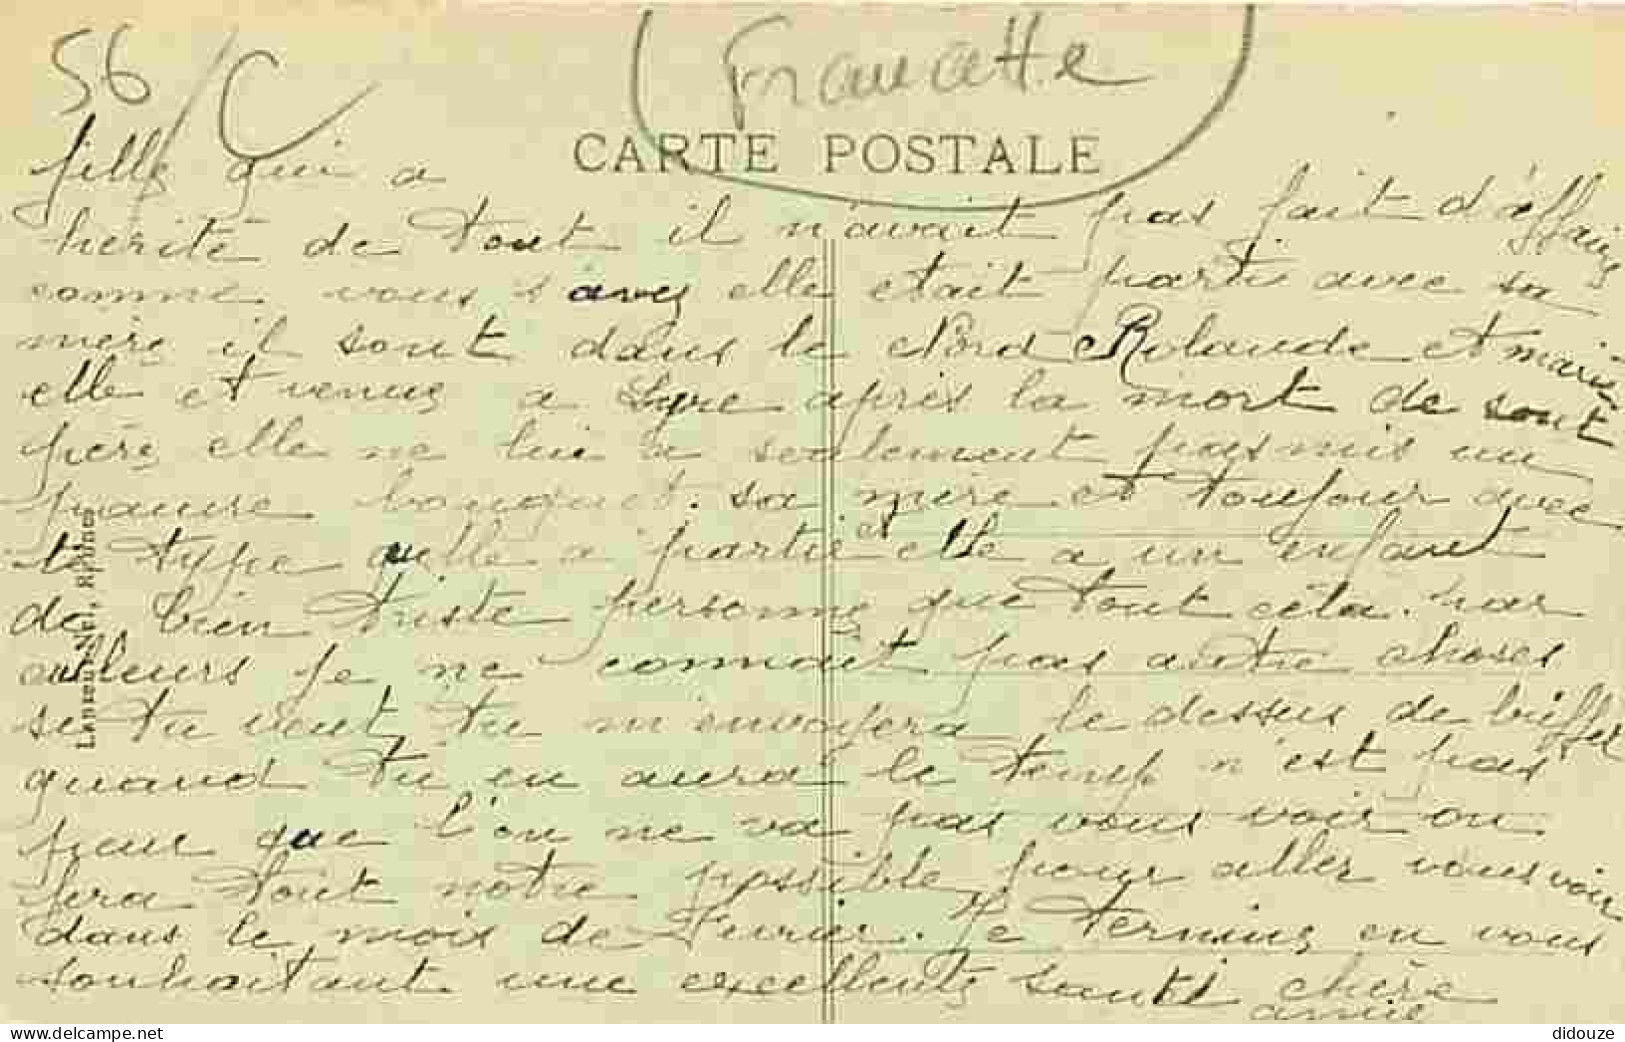 56
C
Francette
CARTE POSTALE
fille qui a
herité de tout il n'avait pas fait d'affaire
comme vous s avez elle etait parti avec sa
mère il sont dans le Nord Rolande et marie
elle et venue a Lyre après la mort de sont
père elle ne lui a seulement pas mis un
pauvre bouquet. sa mère et toujour avec
le type quelle a partie et elle a un enfant
de bien triste personne que tout cela. par
ailleurs je ne connait pas autre choses
si tu veut, tu m'envoyera le dessus de buffet
quand tu en aura le temp n'est pas
peur que l'on ne va pas vous voir on
fera tout notre possible pour aller vous voir
dans le mois de Fevrier. Je termine en vous
souhaitant une excellente santé chère
amie
Rennes
delcampe.net
didouze